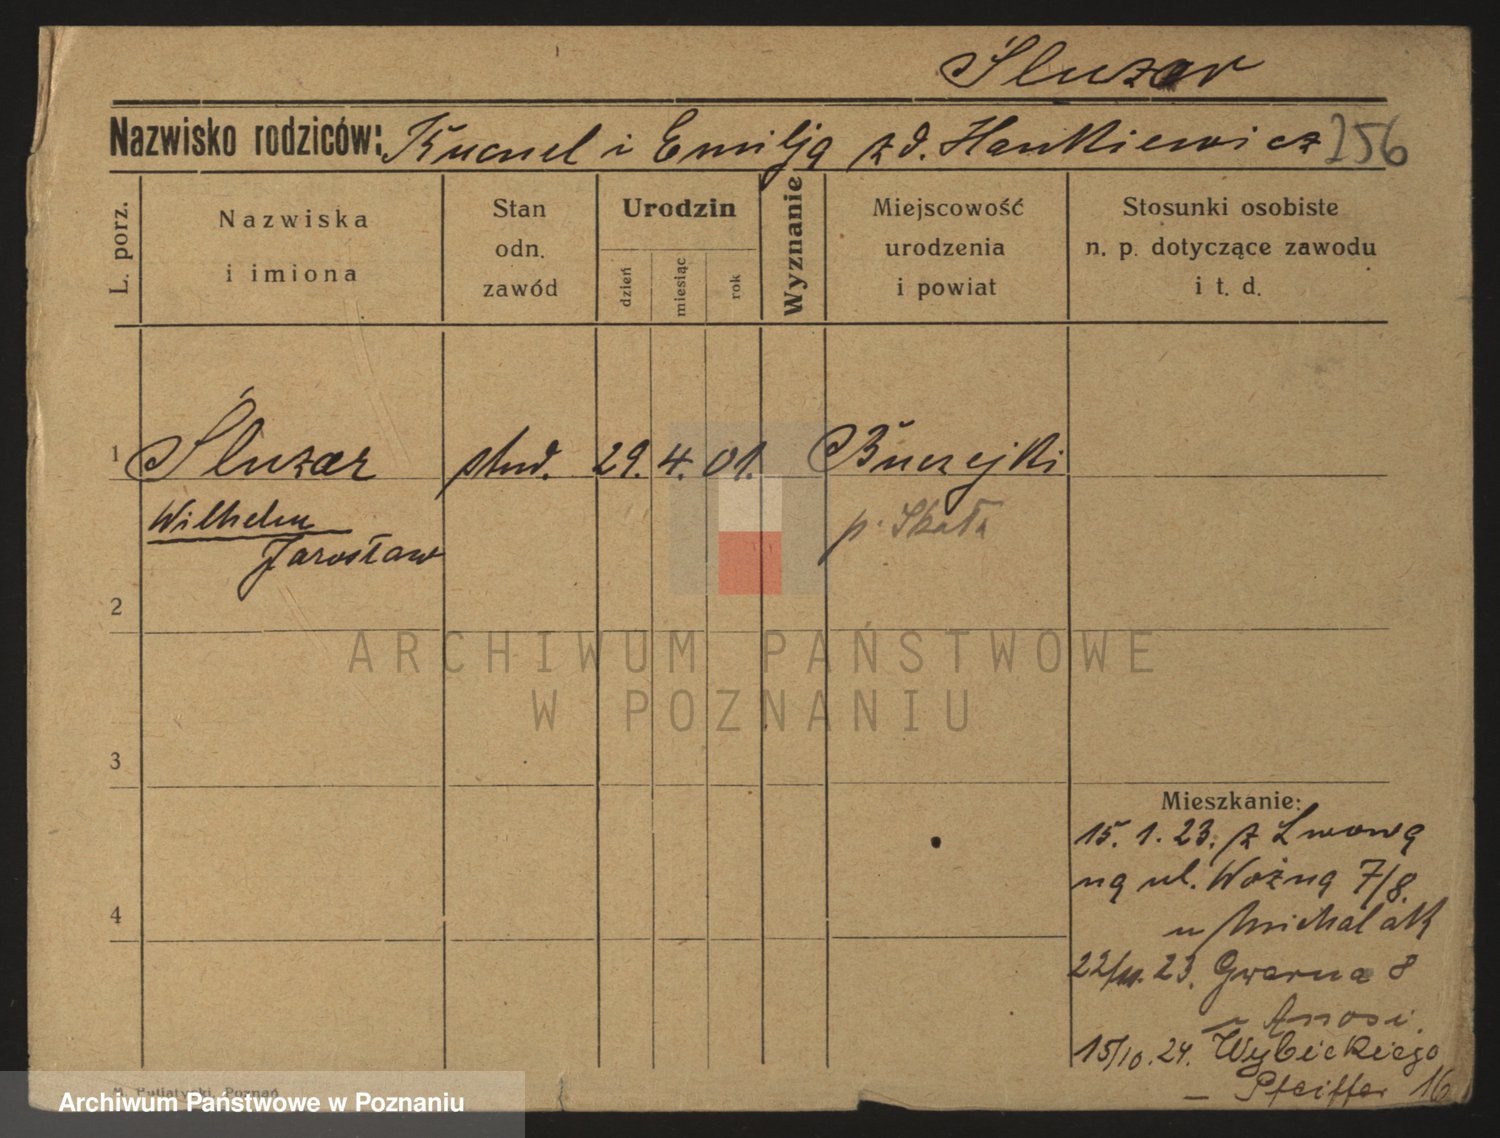 Śluzar
Nazwisko rodziców: Kornel i Emilja z d. Hankiewicz 256
L. porz.
Nazwiska
i imiona
Stan
odn.
zawód
Urodzin
dzień
miesiąc
rok
Wyznanie
Miejscowość
urodzenia
i powiat
Stosunki osobiste
n. p. dotyczące zawodu
i t. d.
1 Śluzar stud. 29. 4. 01.
Wilhelm
Jarosław
p. Skała
2
ARCHIWUM PAŃSTWOWE
W POZNANIU
3
Mieszkanie:
15. 1. 23. z Lwowa
na ul. Woźna 7/8.
u Michalak
4
23. Gwarna 8
u
15/10. 24. Wybickiego
– Pfeiffer 16
Poznań
Archiwum Państwowe w Poznaniu